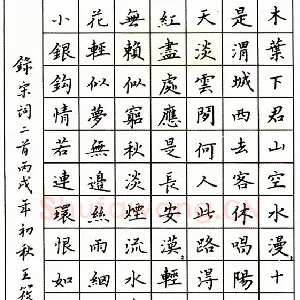 木葉下君山空水漫〻十
是渭城西去客休唱陽
天淡雲閒何人此路得
紅盡處應是長安漠〻輕
無賴似窮秋淡煙流水
花輕似夢無邊絲雨細
小銀鈎情若連環恨如
錄宋詞二首丙戌年初秋王筱